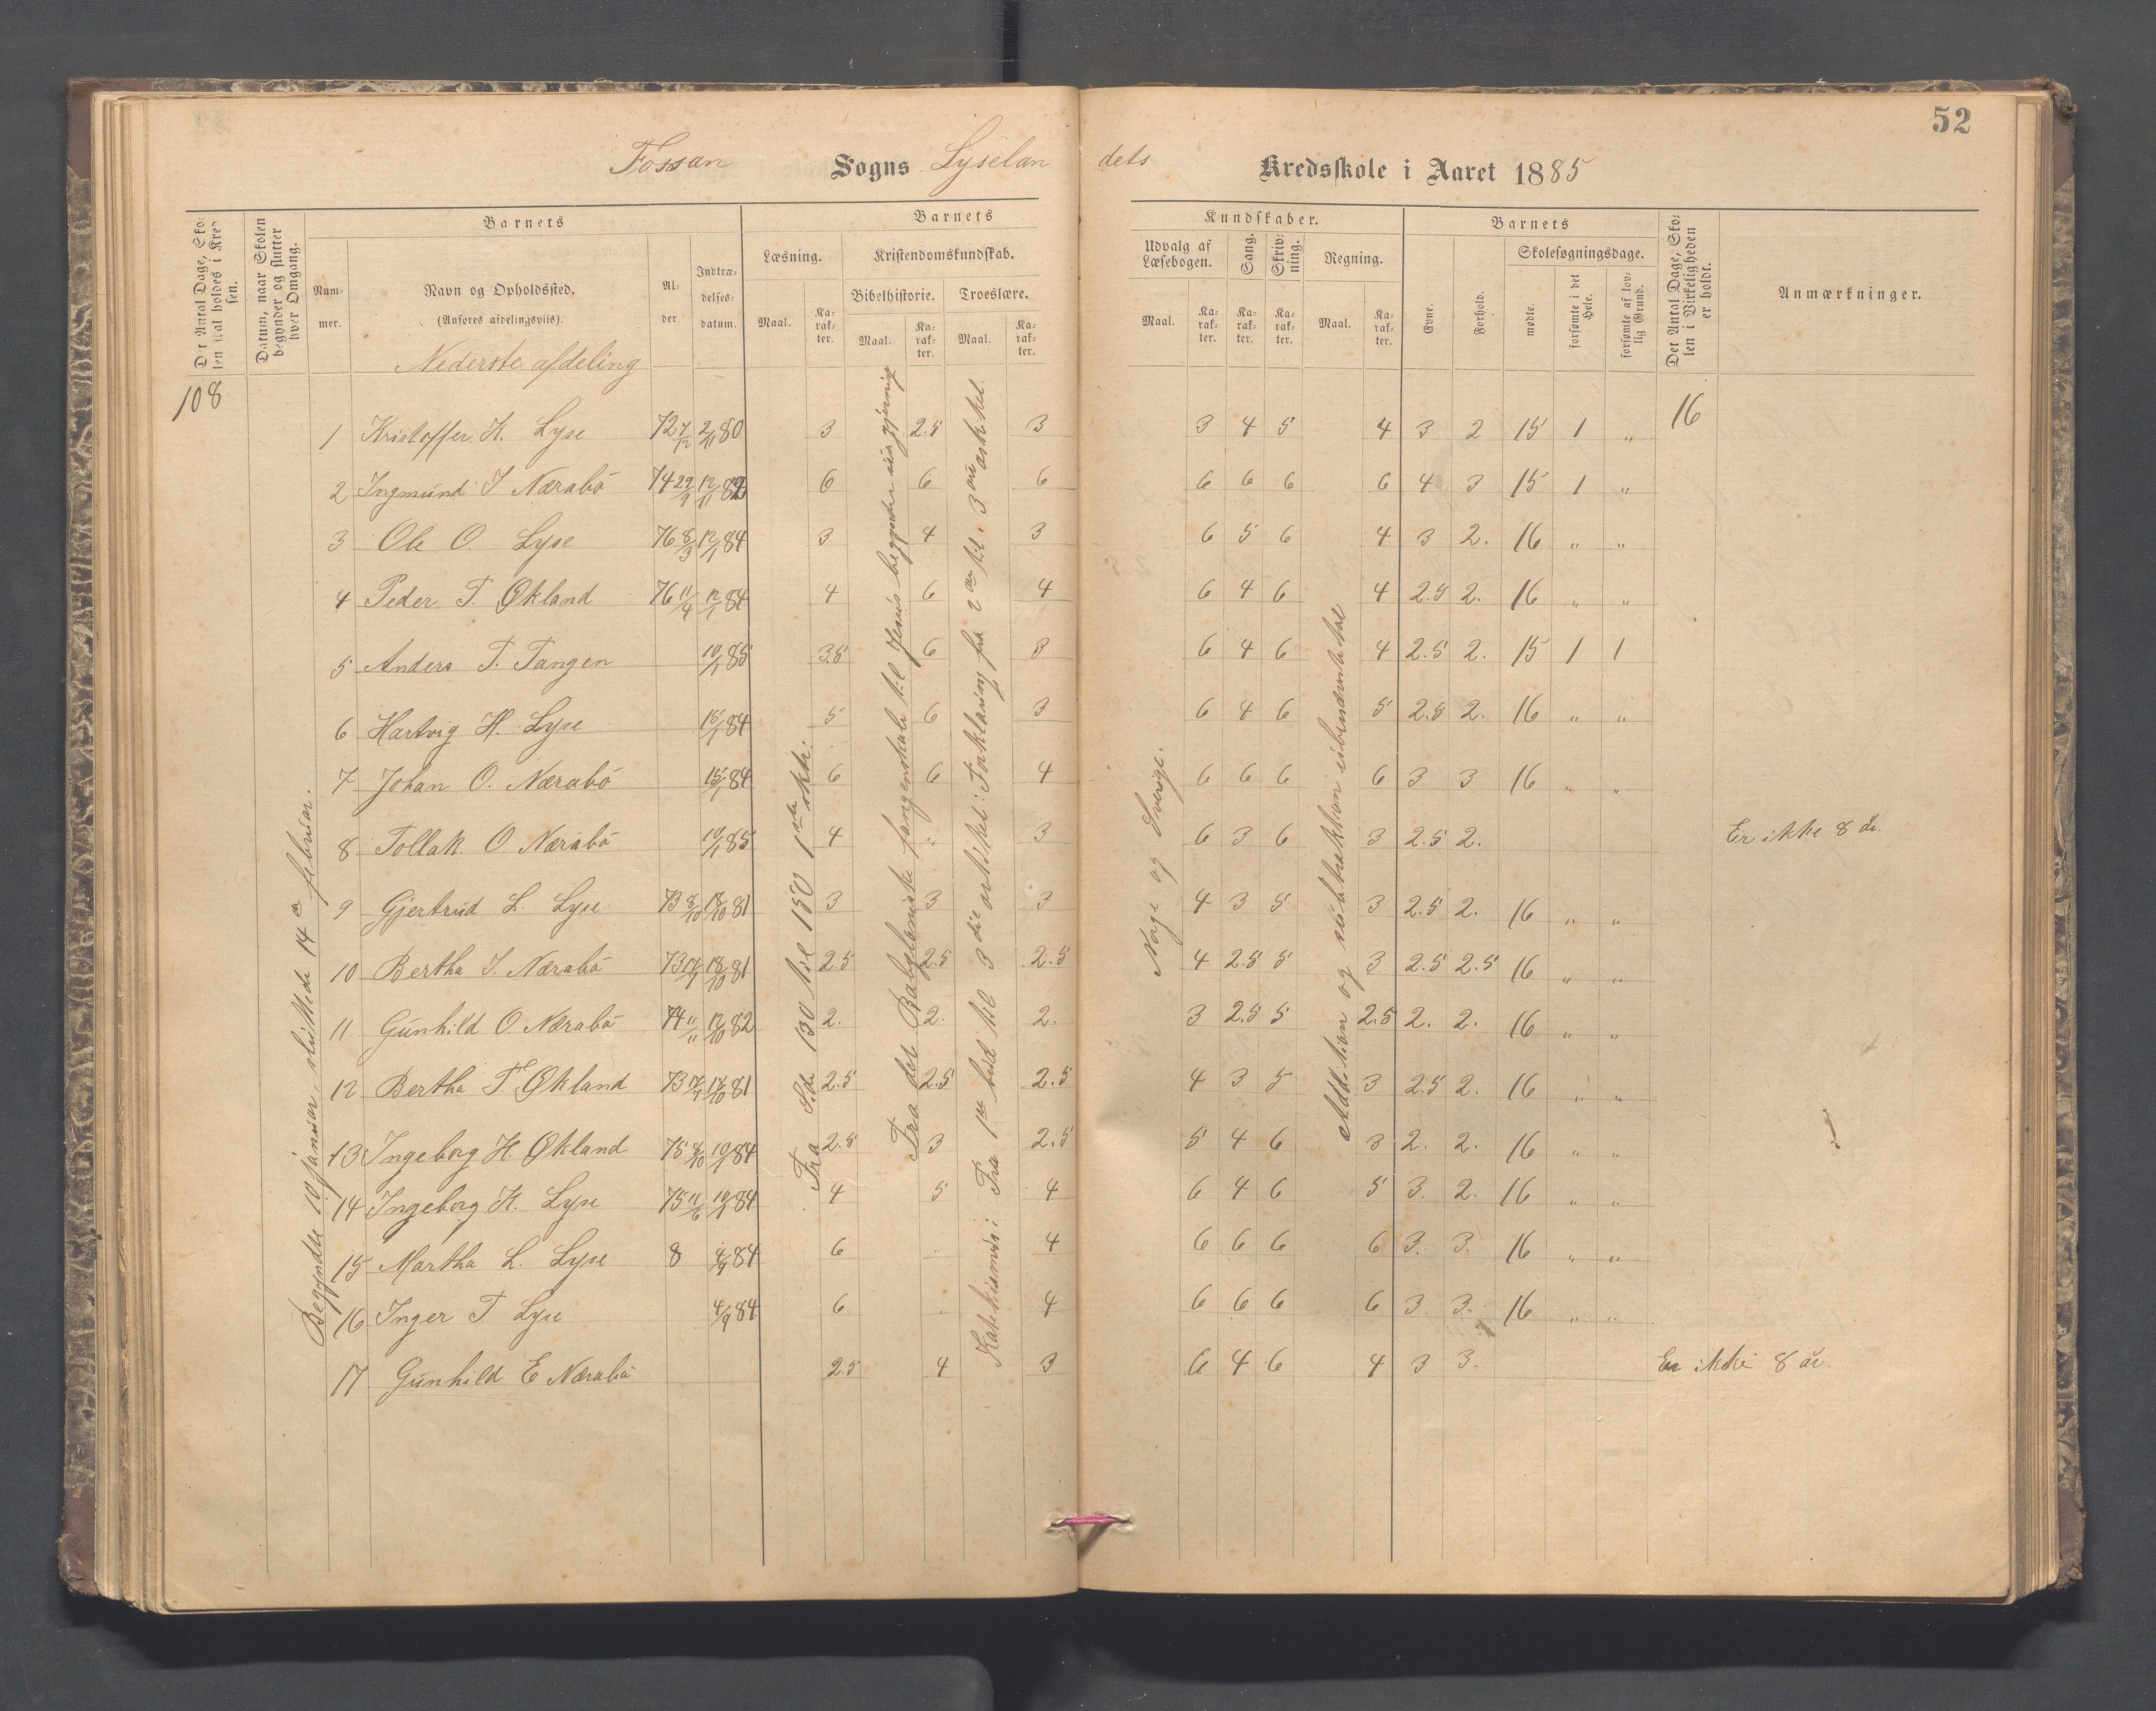 52
Fossan Sogns Lyselan dets Kredsskole i Aaret 1885
Det Antal Dage, Skolen skal holdes i Kredsen.
Datum, naar Skolen begynder og slutter hver Omgang.
Barnets
Nummer.
Navn og Opholdssted.
(Anføres afdelingsviis).
Alder.
Indtrædelsesdatum.
Barnets Kundskaber.
Læsning.
Maal.
Karakter.
Kristendomskundskab.
Bibelhistorie.
Maal.
Karakter.
Troeslære.
Maal.
Karakter.
Udvalg af Læsebogen.
Maal.
Karakter.
Sang.
Karakter.
Skrivning.
Karakter.
Regning.
Maal.
Karakter.
Barnets
Evne.
Forhold.
Skolesøgningsdage.
mødte.
forsømte i det Hele.
forsømte af lovlig Grund.
Det Antal Dage, Skolen i Virkeligheden er holdt.
Anmærkninger.
Nederste afdeling
108
16
1 Kristoffer K. Lyse 72 7/12 2/11 80 3 2.5 3 3 4 5 4 3 2 15 1 "
2 Ingmund I Nærabö 74 29/9 12/11 82 6 6 6 6 6 6 6 4 3 15 1 "
3 Ole O. Lyse 76 8/3 12/1 84 3 4 3 6 5 6 4 3 2. 16 " "
4 Peder T. Økland 76 11/4 12/1 84 4 6 4 6 4 6 4 2.5 2. 16 " "
5 Anders T. Tangen 10/1 85 3.5 6 3 6 4 6 4 2.5 2. 15 1 1
6 Hartvig H. Lyse 15/1 84 5 6 3 6 4 6 5 2.5 2. 16 " "
7 Johan O. Nærabö 15/1 84 6 6 4 6 6 6 6 3 3 16 " "
8 Tollak O. Nærabö 10/1 85 4 " 3 6 3 6 3 2.5 2. Er ikke 8 år.
9 Gjertrud L. Lyse 73 8/10 18/10 81 3 3 3 4 3 5 3 2.5 2. 16 " "
10 Bertha I. Nærabö 73 18/10 81 2.5 2.5 2.5 4 2.5 5 3 2.5 2.5 16 " "
11 Gunhild O Nærabö 74 11/11 12/10 82 2. 2. 2. 3 2.5 5 2.5 2. 2. 16 " "
12 Bertha T Økland 73 17/10 81 2.5 2.5 2.5 4 3 5 3 2.5 2. 16 " "
13 Ingeborg H Økland 75 10/1 84 2.5 3 2.5 5 4 6 3 2. 2. 16 " "
14 Ingeborg K. Lyse 75 11/6 10/1 84 4 5 4 6 4 6 5 3. 2. 16 " "
15 Martha L. Lyse 8 4/9 84 6 " 4 6 6 6 6 3. 3. 16 " "
16 Inger T Lyse 4/9 84 6 " 4 6 6 6 6 3 3. 16 " "
17 Gunhild E Nærabö 2.5 4 3 6 4 6 4 3 3. Er ikke 8 år.
Begyndte 10 januar, sluttede 14 de februar.
Fra Side 130 til 150 1ste
Fra det Babyloniske fangenskab til Jesus begynder sin gjerning
Katekismus: Fra 1ste bud til 3die artikel: Forklaring fra 2den til 3die artikel.
Norge og Sverige.
Addition og subtraktion